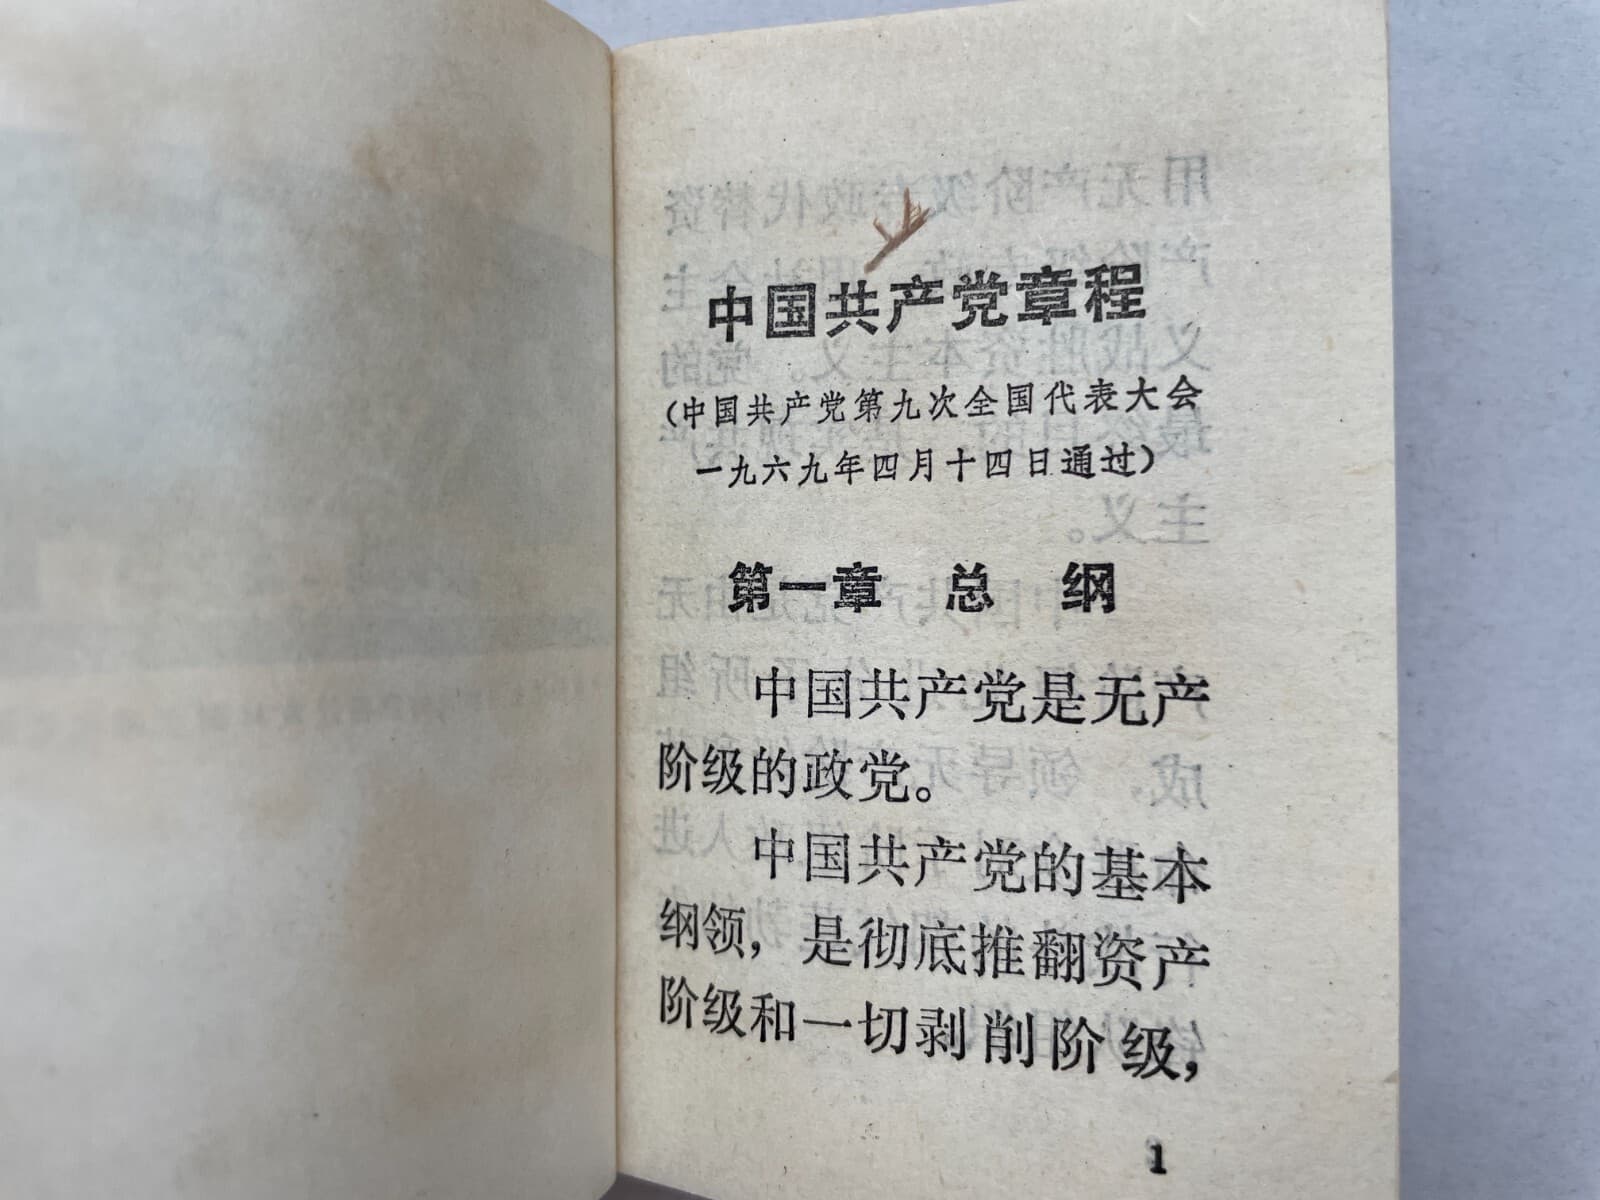 中国共产党章程
(中国共产党第九次全国代表大会
一九六九年四月十四日通过)
第一章 总 纲
中国共产党是无产
阶级的政党。
中国共产党的基本
纲领，是彻底推翻资产
阶级和一切剥削阶级，
1